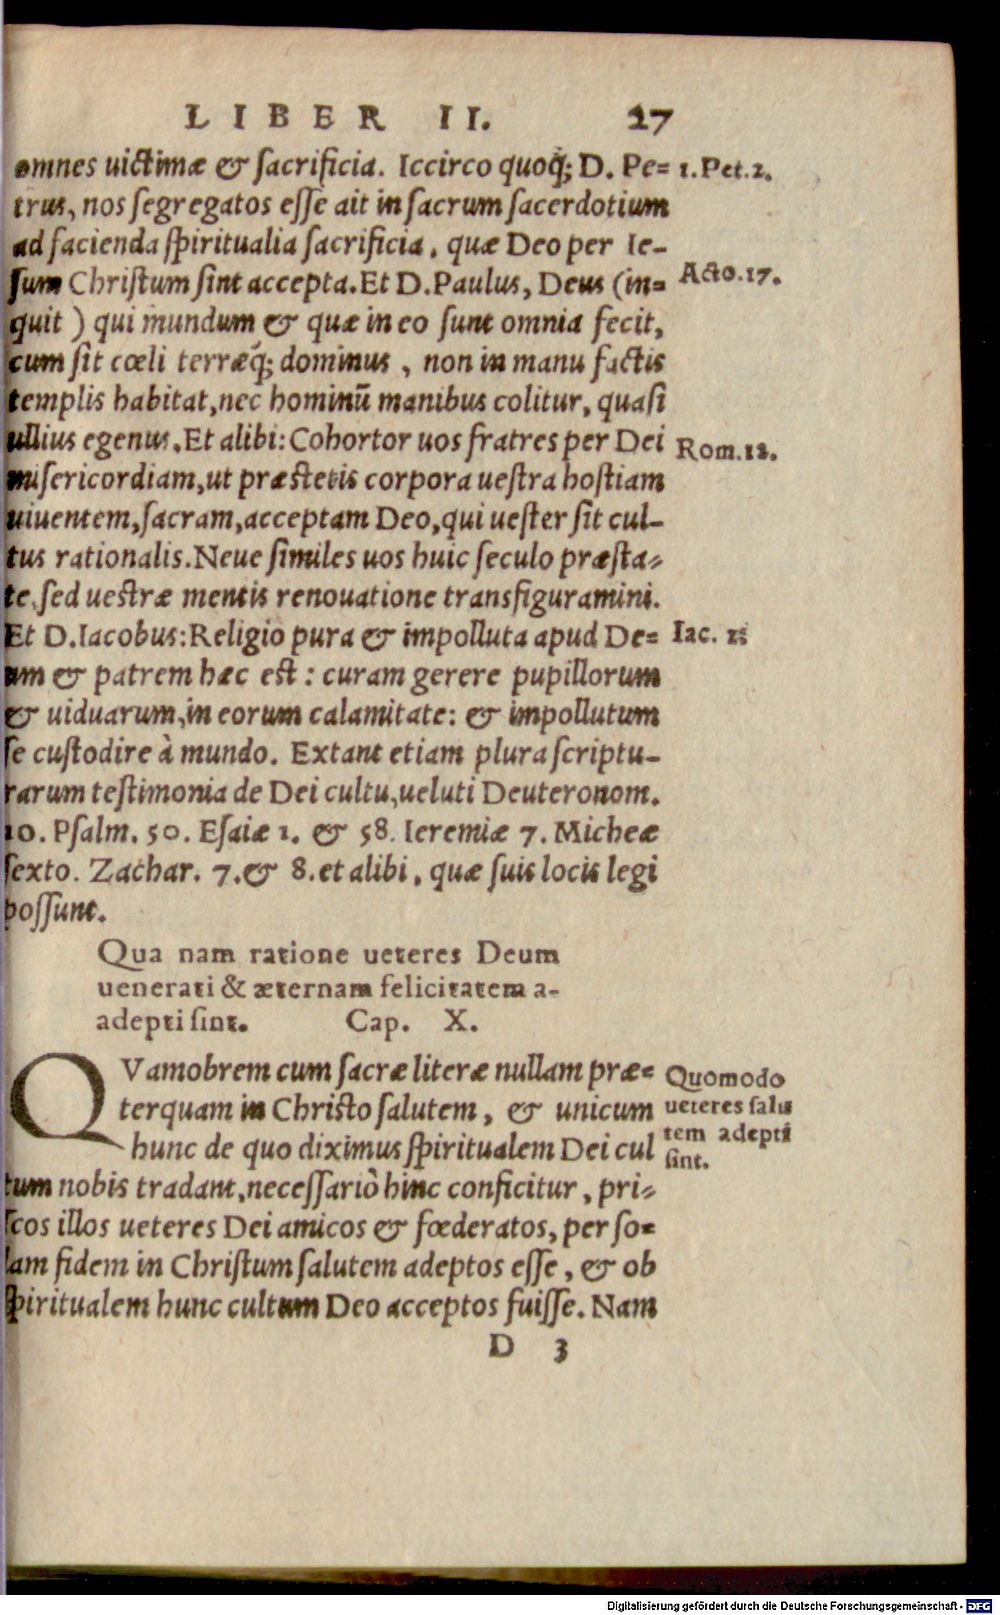 LIBER II. 27
omnes uictimæ & sacrificia. Iccirco quoq́; D. Pe= 1.Pet.2.
trus, nos segregatos esse ait in sacrum sacerdotium
ad facienda spiritualia sacrificia, quæ Deo per Ie-
sum Christum sint accepta. Et D. Paulus, Deus (in= Acto.17.
quit) qui mundum & quæ in eo sunt omnia fecit,
cum sit cœli terræq́; dominus, non in manu factis
templis habitat, nec hominū manibus colitur, quasi
ullius egenus. Et alibi: Cohortor uos fratres per Dei Rom.12.
misericordiam, ut præstetis corpora uestra hostiam
uiuentem, sacram, acceptam Deo, qui uester sit cul-
tus rationalis. Neue similes uos huic seculo præsta-
te, sed uestræ mentis renouatione transfiguramini.
Et D. Iacobus: Religio pura & impolluta apud De= Iac. 1.
um & patrem hæc est: curam gerere pupillorum
& uiduarum, in eorum calamitate: & impollutum
se custodire à mundo. Extant etiam plura scriptu-
rarum testimonia de Dei cultu, ueluti Deuteronom.
10. Psalm. 50. Esaiæ 1. & 58. Ieremiæ 7. Micheæ
sexto. Zachar. 7. & 8. et alibi, quæ suis locis legi
possunt.
Qua nam ratione ueteres Deum
uenerati & æternam felicitatem a-
adepti sint. Cap. X.
QVamobrem cum sacræ literæ nullam præ= Quomodo
terquam in Christo salutem, & unicum ueteres salu
hunc de quo diximus spiritualem Dei cul tem adepti
sint.
tum nobis tradant, necessariò hinc conficitur, pri-
scos illos ueteres Dei amicos & fœderatos, per so=
lam fidem in Christum salutem adeptos esse, & ob
spiritualem hunc cultum Deo acceptos fuisse. Nam
D 3
Digitalisierung gefördert durch die Deutsche Forschungsgemeinschaft - DFG